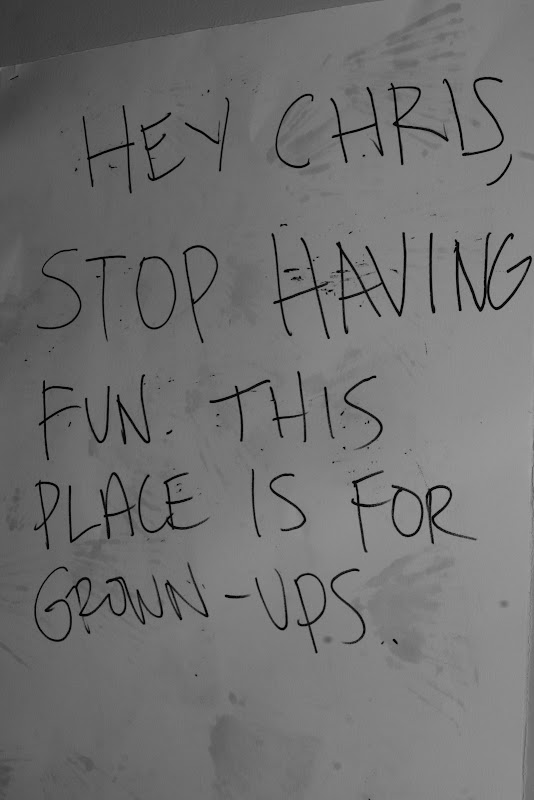 HEY CHRIS,
STOP HAVING
FUN. THIS
PLACE IS FOR
GROWN-UPS..